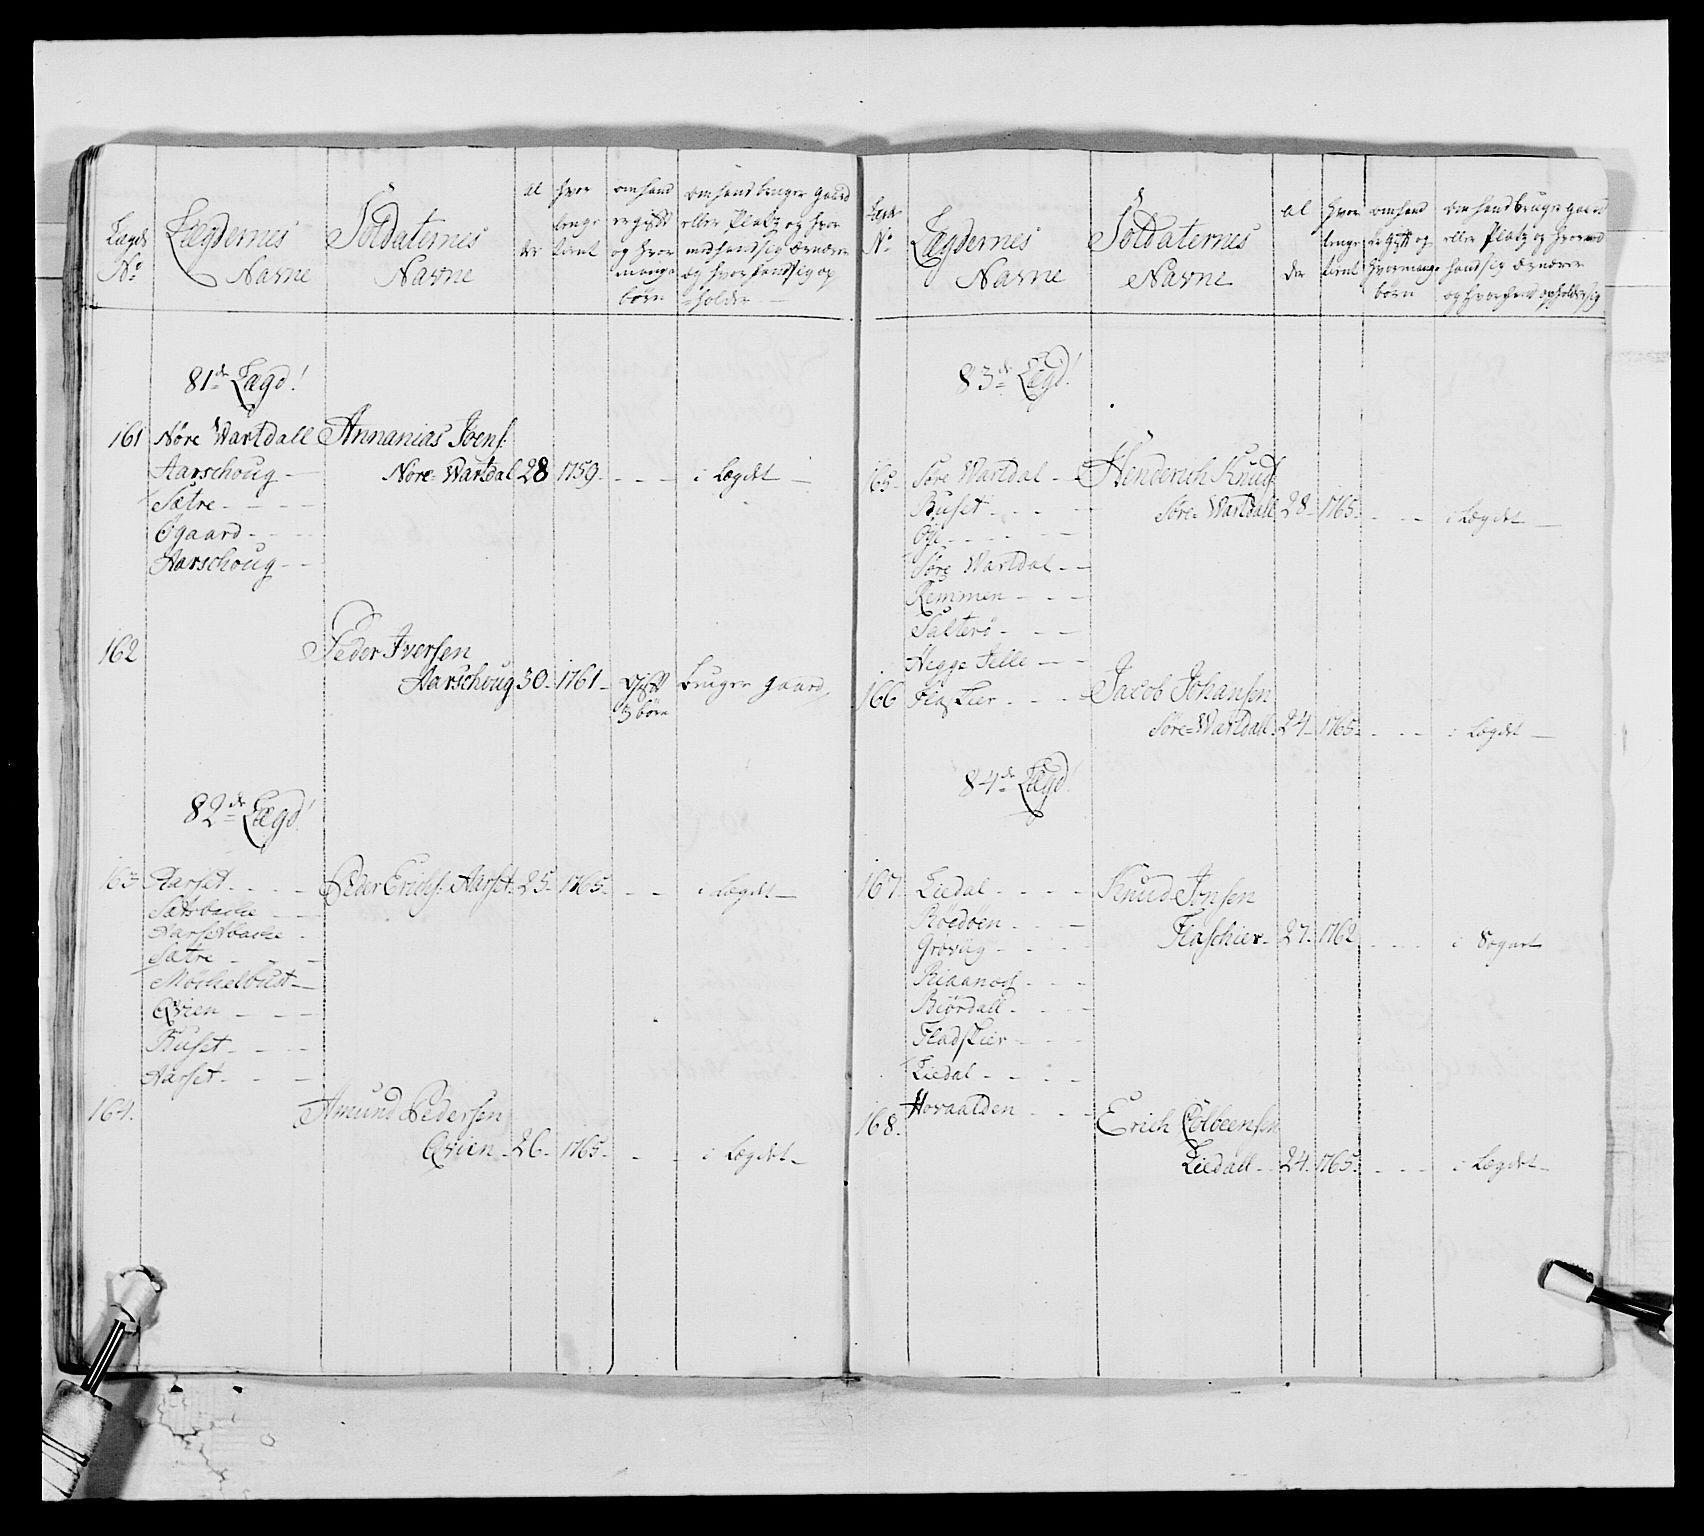 Lægdernes
Navne
Soldaternes
Navne
al
der
hvor
lenge
tient
om hand
er gift
og hvor
mange
börn
om hand bruger gaard
eller Platz og hvor
med hand sig ernærer
og hvor hand sig op
holder
81de Lægd!
161 Nøre Wartdall Annanias Joens:
Aarschoug - Nore-Wartdal 28 1759 - - - i Lægdet -
Sætre - - - -
Øgaard - - -
Aarschoug - -
162 Peder Iversen
Aarschoug 30 - 1761 - Gift bruger gaard
3 börn
82de Lægd!
163 Aarset - - - - Peder Erichs: Aarset 25 - 1765 - - - i Lægdet -
Aarsetbache -
Sætre - - - -
Møchelbust -
Qvien - - -
Buset - - -
Aarset - - -
164. Amund Pedersen
Qvien - 26 - 1765 - - - i Lægdet -
No
Lægdernes
Navne
Soldaternes
Navne
al
der
hvor
lenge
tient
om hand
er gift og
hvor mange
börn
om hand bruger gaard
eller Platz og hvormed
hand sig ernærer
og hvor hand opholder sig
83de Lægd!
165 - Søre Wartdal - - Henderich Knuds:
Buset - - - Søre-Wartdall 28 - 1765 - - - i Lægdet -
Øye - - - -
Søre Wartdal - -
Remmen - - -
Salterö - - -
Hegge Telle - -
166 Flaskier - - - Jacob Johansen
Søre-Wartdall 24 - 1765 - - - i Lægdet -
84de Lægd!
167 Liedal - - - - Knud Jonsen
Roedøen - - - Flaschier - 27 - 1762 - - - i Sognet
Grovüg - - -
Riaanos - - -
Biördall - - -
Fladskier - - -
Liedal - - - -
Hovaalden - - -
168. Erich Colbeensen
Liedall - 24 - 1765 - - - i Lægdet -